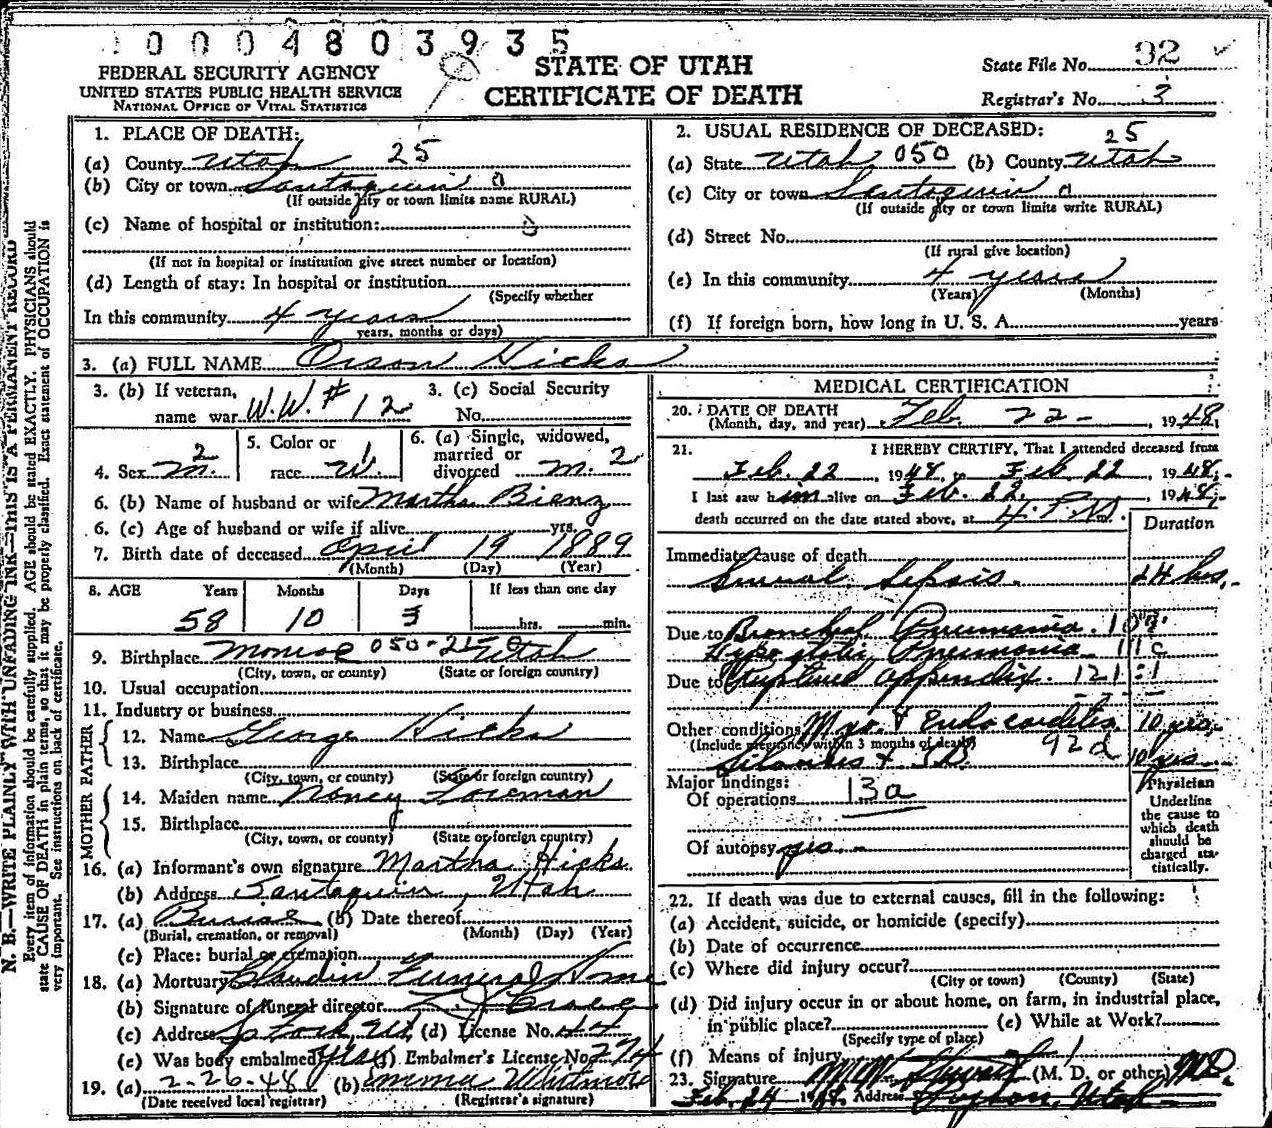 10004803935
FEDERAL SECURITY AGENCY
UNITED STATES PUBLIC HEALTH SERVICE
NATIONAL OFFICE OF VITAL STATISTICS
STATE OF UTAH
CERTIFICATE OF DEATH
State File No. 92
Registrar's No. 3
N. B.—WRITE PLAINLY WITH UNFADING INK—THIS IS A PERMANENT RECORD
Every item of information should be carefully supplied. AGE should be stated EXACTLY. PHYSICIANS should
state CAUSE OF DEATH in plain terms, so that it may be properly classified. Exact statement of OCCUPATION is
very important. See instructions on back of certificate.
1. PLACE OF DEATH:
(a) County Utah 25
(b) City or town Santaquin 0
(If outside city or town limits name RURAL)
(c) Name of hospital or institution:
(If not in hospital or institution give street number or location)
(d) Length of stay: In hospital or institution
(Specify whether
In this community 4 years
years, months or days)
2. USUAL RESIDENCE OF DECEASED:
25
(a) State Utah 050 (b) County Utah
(c) City or town Santaquin 0
(If outside city or town limits write RURAL)
(d) Street No.
(If rural give location)
(e) In this community 4 years
(Years) (Months)
(f) If foreign born, how long in U. S. A. years
3. (a) FULL NAME Orson Hicks
3. (b) If veteran,
name war W.W. # 1 2
3. (c) Social Security
No.
4. Sex M. 2
5. Color or
race W. 1
6. (a) Single, widowed,
married or
divorced M. 2
6. (b) Name of husband or wife Martha Bienz
6. (c) Age of husband or wife if alive yrs.
7. Birth date of deceased April 19 1889
(Month) (Day) (Year)
8. AGE Years Months Days If less than one day
58 10 3 hrs. min.
9. Birthplace Monroe 050-25 Utah
(City, town, or county) (State or foreign country)
10. Usual occupation
11. Industry or business
FATHER
12. Name George Hicks
13. Birthplace
(City, town, or county) (State or foreign country)
MOTHER
14. Maiden name Nancy
15. Birthplace
(City, town, or county) (State or foreign country)
16. (a) Informant's own signature Martha Hicks
(b) Address Santaquin, Utah
17. (a) Burial (b) Date thereof
(Burial, cremation, or removal) (Month) (Day) (Year)
(c) Place: burial or cremation
18. (a) Mortuary Claudin Funeral Home
(b) Signature of funeral director
(c) Address Sp Fork, Ut (d) License No. 44
(e) Was body embalmed yes (f) Embalmer's License No. 274
19. (a) 2-26-48 (b) Emma Whitmore
(Date received local registrar) (Registrar's signature)
MEDICAL CERTIFICATION
20. DATE OF DEATH
(Month, day, and year) Feb. 22- , 1948.
21. I HEREBY CERTIFY, That I attended deceased from
Feb. 22 , 1948, Feb 22 , 1948;
I last saw him alive on Feb. 22. , 1948;
death occurred on the date stated above, at 4. P. M.
Duration
Immediate cause of death
Sepsis. 24 hrs.
Due to Bronchial Pneumonia. 107
Hypostatic Pneumonia 11c
Due to Ruptured appendix. 121:1
Other conditions Myo. & Endocarditis 10 yrs.
(Include pregnancy within 3 months of death) 92d
Silicosis & TB. 10 yrs
Major findings:
Of operations 13a
Of autopsy yes.
Physician
Underline
the cause to
which death
should be
charged sta-
tistically.
22. If death was due to external causes, fill in the following:
(a) Accident, suicide, or homicide (specify)
(b) Date of occurrence
(c) Where did injury occur?
(City or town) (County) (State)
(d) Did injury occur in or about home, on farm, in industrial place,
in public place? (e) While at Work?
(Specify type of place)
(f) Means of injury
23. Signature (M. D. or other) MD.
Feb. 24 1948. Address Payson, Utah